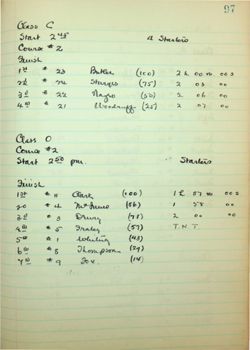 97
Class C
Start 2 45 4 Starters
Course # 2
Finish
1st # 23 Parker (100) 2 h 00 m 00 s
2nd # 24 Sturges (75) 2 03 00
3rd # 22 (50) 2 06 00
4th # 21 Woodruff (25) 2 07 00
Class O
Course # 2
Start 2 50 pm. Starters
Finish
1st # 11 Clark (100)
2d # 4 (86) 1 58 00
3d # 3 Drury (73) 2 00 00
4th # 5 (57) T.N.T.
5th # 1 Whiting (43)
6th # 8 Thompson (29)
7th # 9 Fox. (14)